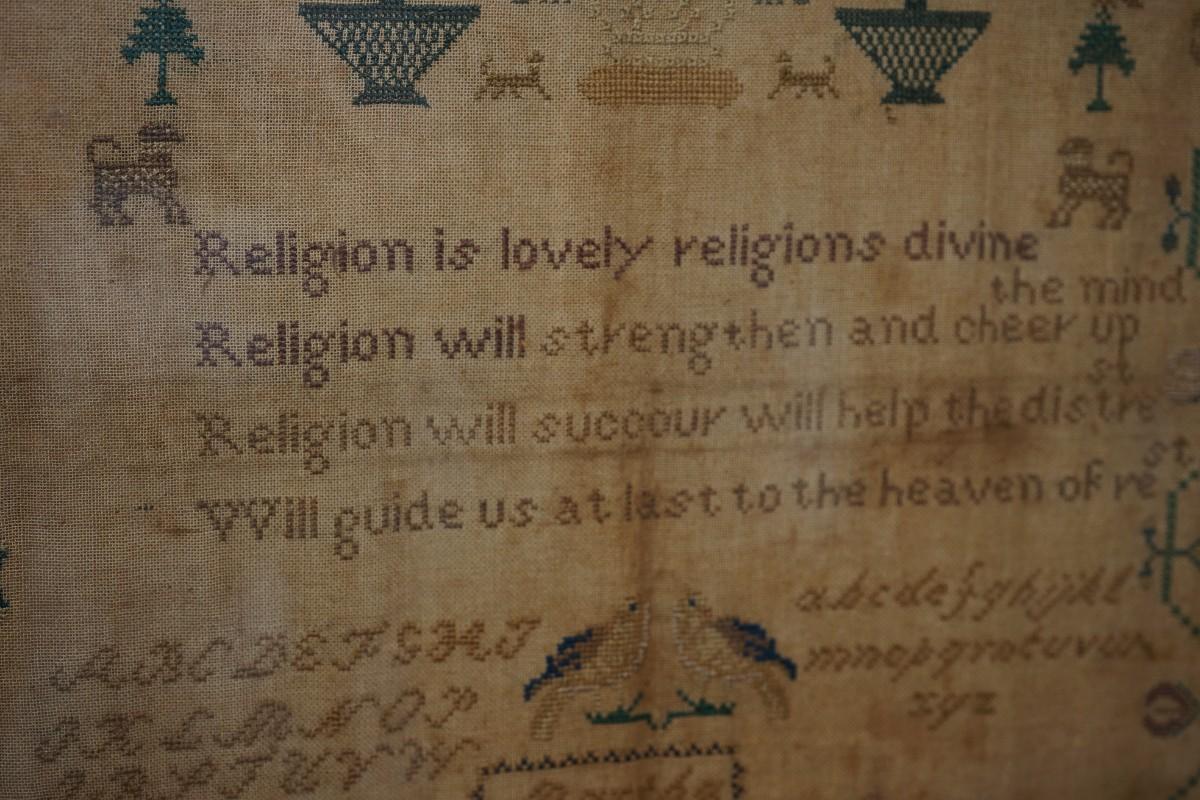 Religion is lovely religions divine
the mind
Religion will strengthen and cheer up
st
Religion will succour will help the distre
st
VVill guide us at last to the heaven of re
ABCDEFGHI
abcdefghijkl
JKLMNOP
mnopqrstuvwx
xyz